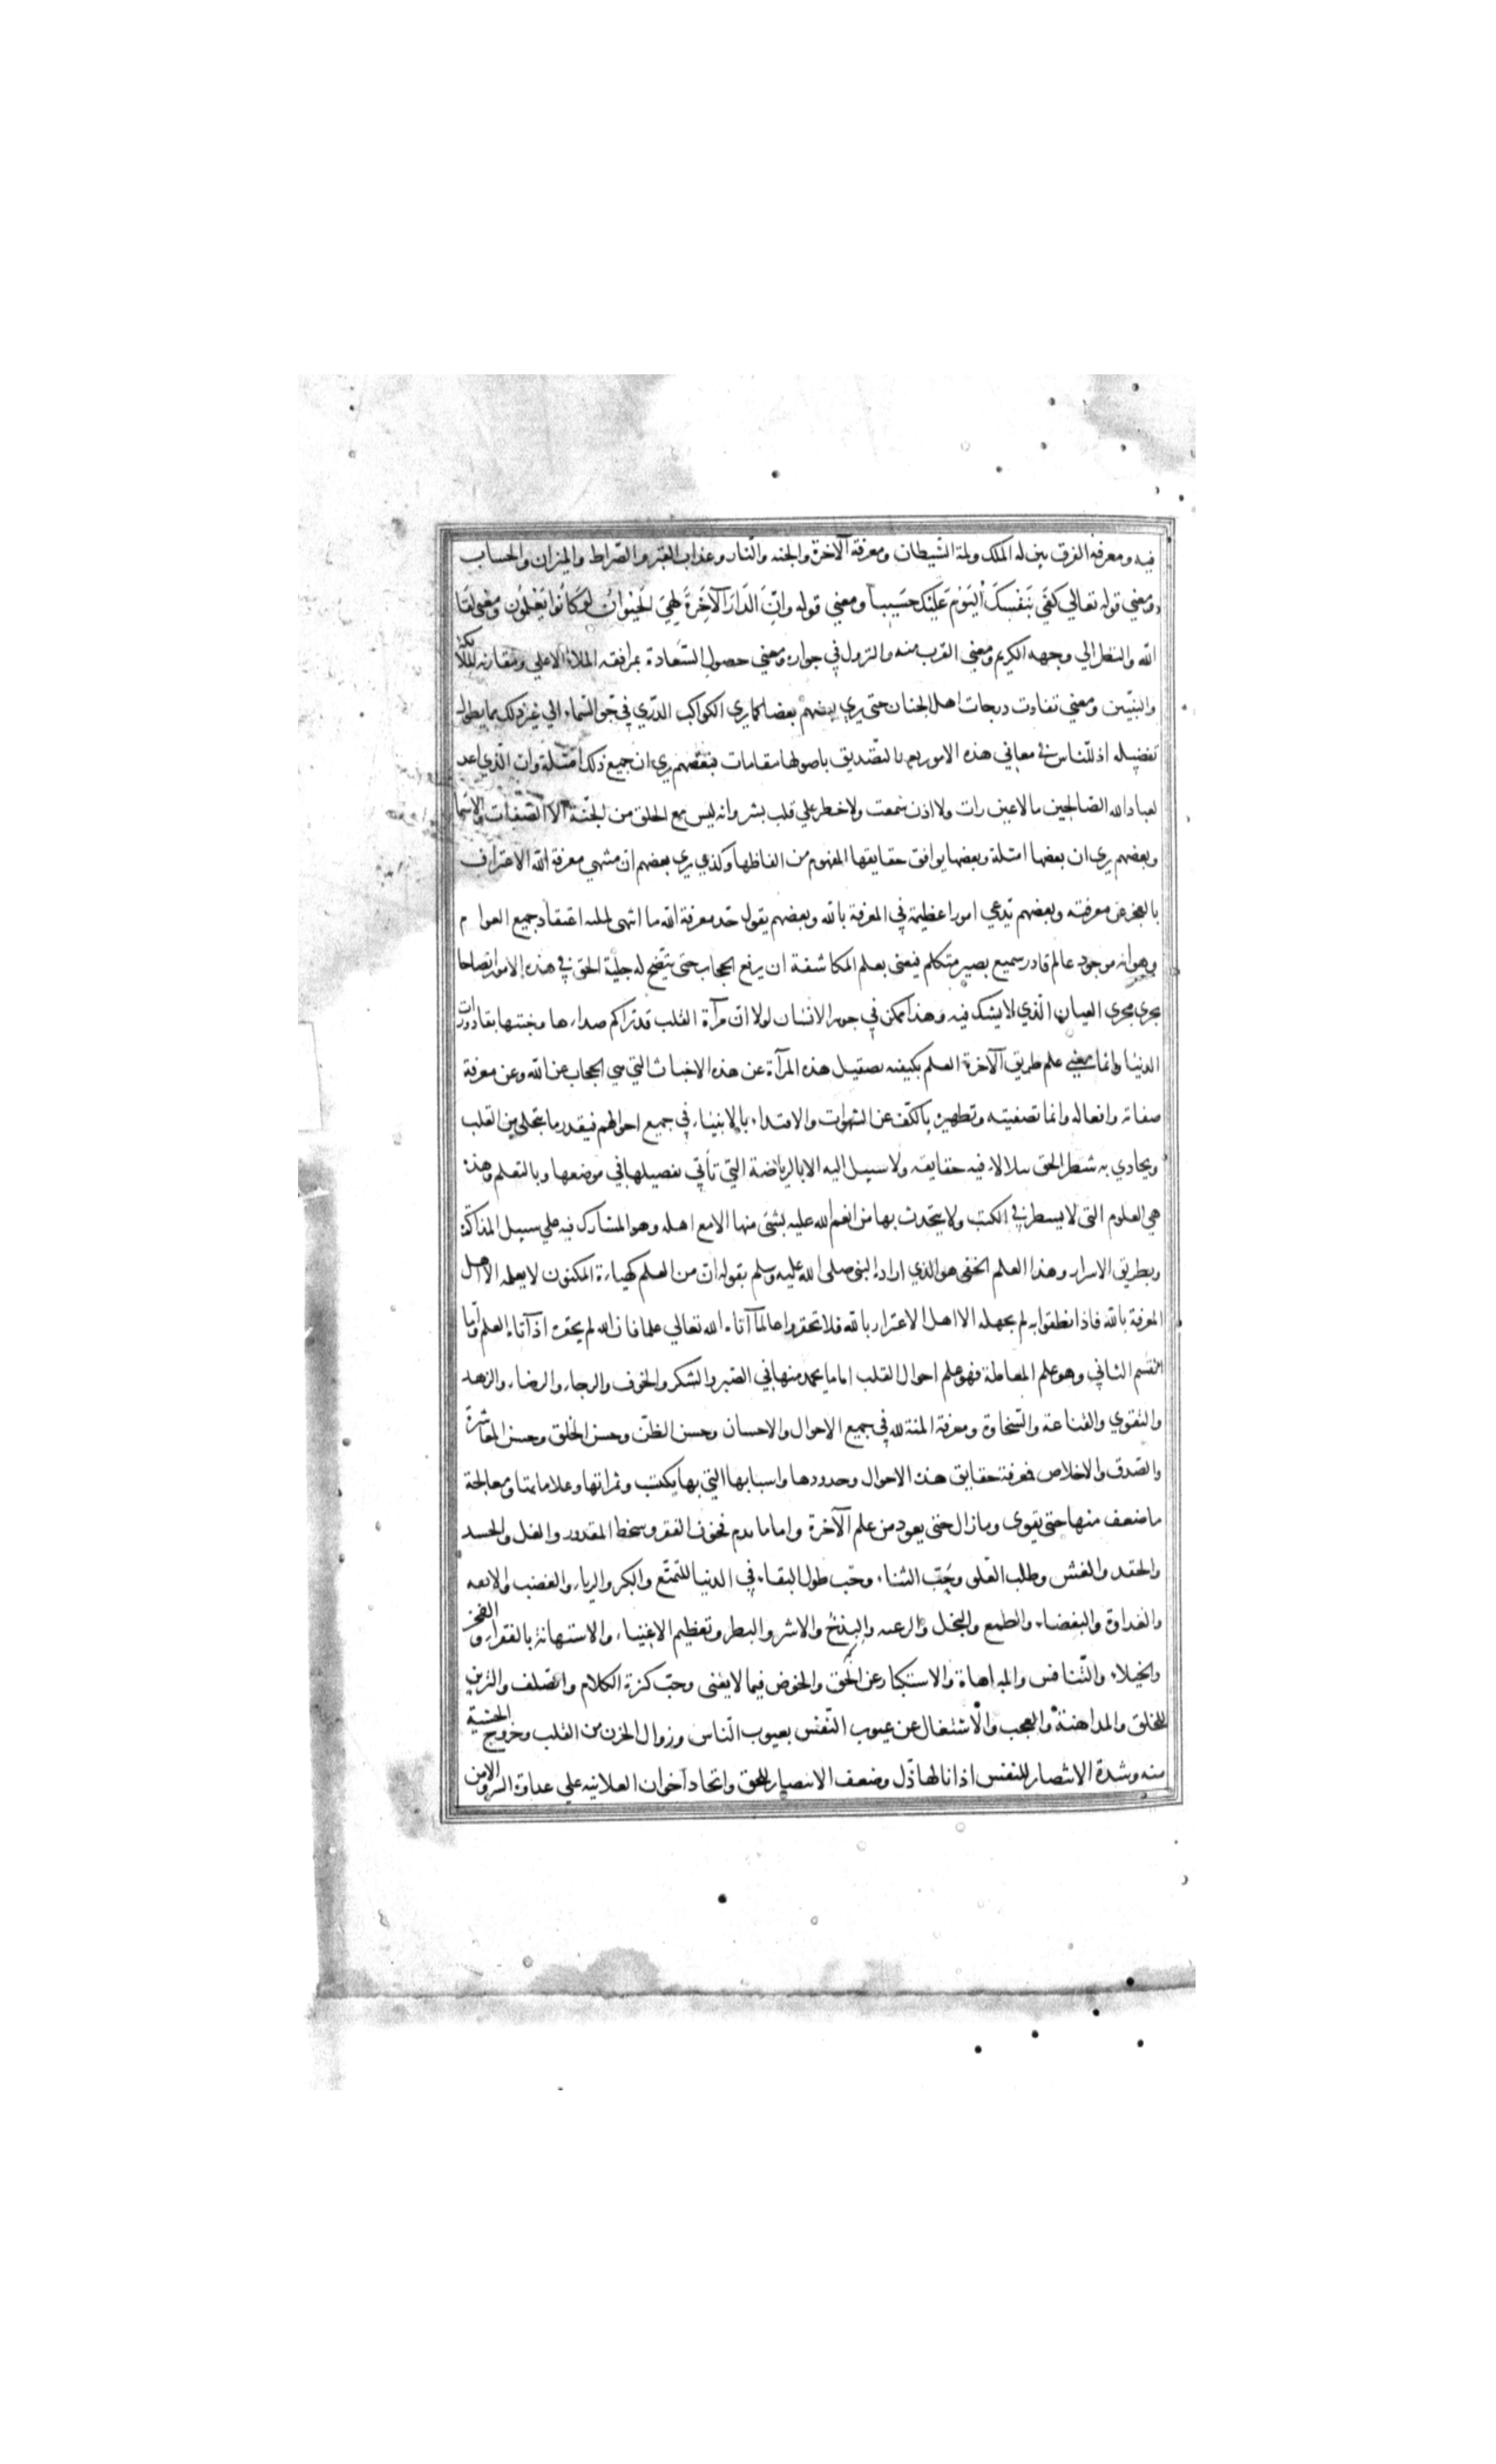 فيه ومعرفة الفرق بين لمة الملك ولمة الشيطان ومعرفة الآخرة والجنه والنار وعذاب القبر والصراط والميزان والحساب
ومعني قوله تعالي كفَي بنَفسِكَ اليَوْمَ عَلَيْكَ حَسَيباً ومعني قوله وانَّ الدَّارَ الآخِرَةَ لهِيَ الحَيَوانُ لوْ كَانُوا يَعْلَمُون ومعني لقا
الله والنظر الي وجهه الكريم ومعني القرب منه والنزول في جواره ومعني حصول السَّعادة بمرافقه الملاء الاعلي ومقارنه الملائكة
والنبيّين ومعني تفاوت درجات اهل الجنان حتي يري بعضهم بعضا كما يري الكواكب الدّري في جوّ السّماء الي غير ذلك مما يطول
تفصيله اذ للنّاس في معاني هذه الامور بعد التصديق باصولها مقامات فبعضهم يري ان جميع ذلك امثلة وان الّذي اعد
لعباد الله الصّالحين ما لا عين رات ولا اذن سمعت ولا خطر علي قلب بشر وانه ليس مع الخلق من الجنّة الا الصّفات والاسما
وبعضهم يري ان بعضها امثلة وبعضها يوافق حقايقها المفهوم من الفاظها وكذي يري بعضهم ان منتهي معرفة الله الاعتراف
بالعجز عن معرفته وبعضهم يدعي امورا عظيمة في المعرفة بالله وبعضهم يقول حد معرفة الله ما انتهي اليه اعتقاد جميع العوام
وهو انه موجود عالم قادر سميع بصير متكلم فنعني بعلم المكاشفة ان يرفع الحجاب حتي يتّضح له جليّة الحق في هذه الامور اتضاحا
يجري مجري العيان الّذي لا يشك فيه وهذا ممكن في جوهر الانسان لولا انّ مرآة القلب قد تراكم صداءها وخبثها بقاذورات
الدنيا وانما معني علم طريق الآخرة العلم بكيفيه تصقيل هذه المرآة عن هذه الاخباث التي هي الحجاب عن الله وعن معرفة
صفاته وافعاله وانما تصفيته وتطهيره بالكّف عن الشهوات والاقتداء بالانبياء في جميع احوالهم فبقدر ما يتجلي من القلب
ويحاذي به شطر الحق يتلالاء فيه حقايقه ولا سبيل اليه الا بالرياضة التي تأتي تفصيلها في موضعها وبالتعلم وهذه
هي العلوم التي لا يسطر في الكتب ولا يتحدث بها من انعم الله عليه بشئ منها الا مع اهله وهو المشارك فيه علي سبيل المذاكرة
وبطريق الاسرار وهذا العلم الخفي هو الذي اراد النبي صلى الله عليه وسلم بقوله انّ من العلم كهياءة المكنون لا يعلمه الا اهل
المعرفة بالله فاذا نطقوا به لم يجهله الا اهل الاغترار بالله فلا تحقروا عالماً آتاه الله تعالي علما فان الله لم يحقره اذ آتاه العلم وامّا
القسم الثاني وهو علم المعاملة فهو علم احوال القلب اما ما يحمد منها في الصّبر والشكر والخوف والرجاء والرضاء والزهد
والتقوي والقناعة والسّخاوة ومعرفة المنة لله في جميع الاحوال والاحسان وحسن الظنّ وحسن الخلق وحسن المعاشرة
والصّدق والاخلاص فمعرفة حقايق هذه الاحوال وحدودها واسبابها التي بها يكتسب وثمراتها وعلاماتها ومعالجة
ما ضعف منها حتي يقوي وما زال حتي يعود من علم الآخرة واما ما يذم فخوف الفقر وسخط المقدور والغل والحسد
والحقد والغش وطلب العّلو وحُبّ الثناء وحبّ طول البقاء في الدنيا للتّمتّع والكبر والرياء والغضب والانفه
والعداوة والبغضاء والطمع والبخل والرغبه والبذخ والاشر والبطر وتعظيم الاغنياء والاستهانة بالفقراء والفخر
والخيلاء والتّنافس والمباهاة والاستكبار عن الحق والخوض فيما لا يعني وحبّ كثرة الكلام والصّلف والتزين
للخلق والمداهنة والعجب والاشتغال عن عيوب النّفس بعيوب النّاس وزوال الحزن من القلب وخروج الخشية
منه وشدة الانتصار للنفس اذا نالها ذّل وضعف الانتصار للحق واتخاذ اخوان العلانيه علي عداوة السر والامن